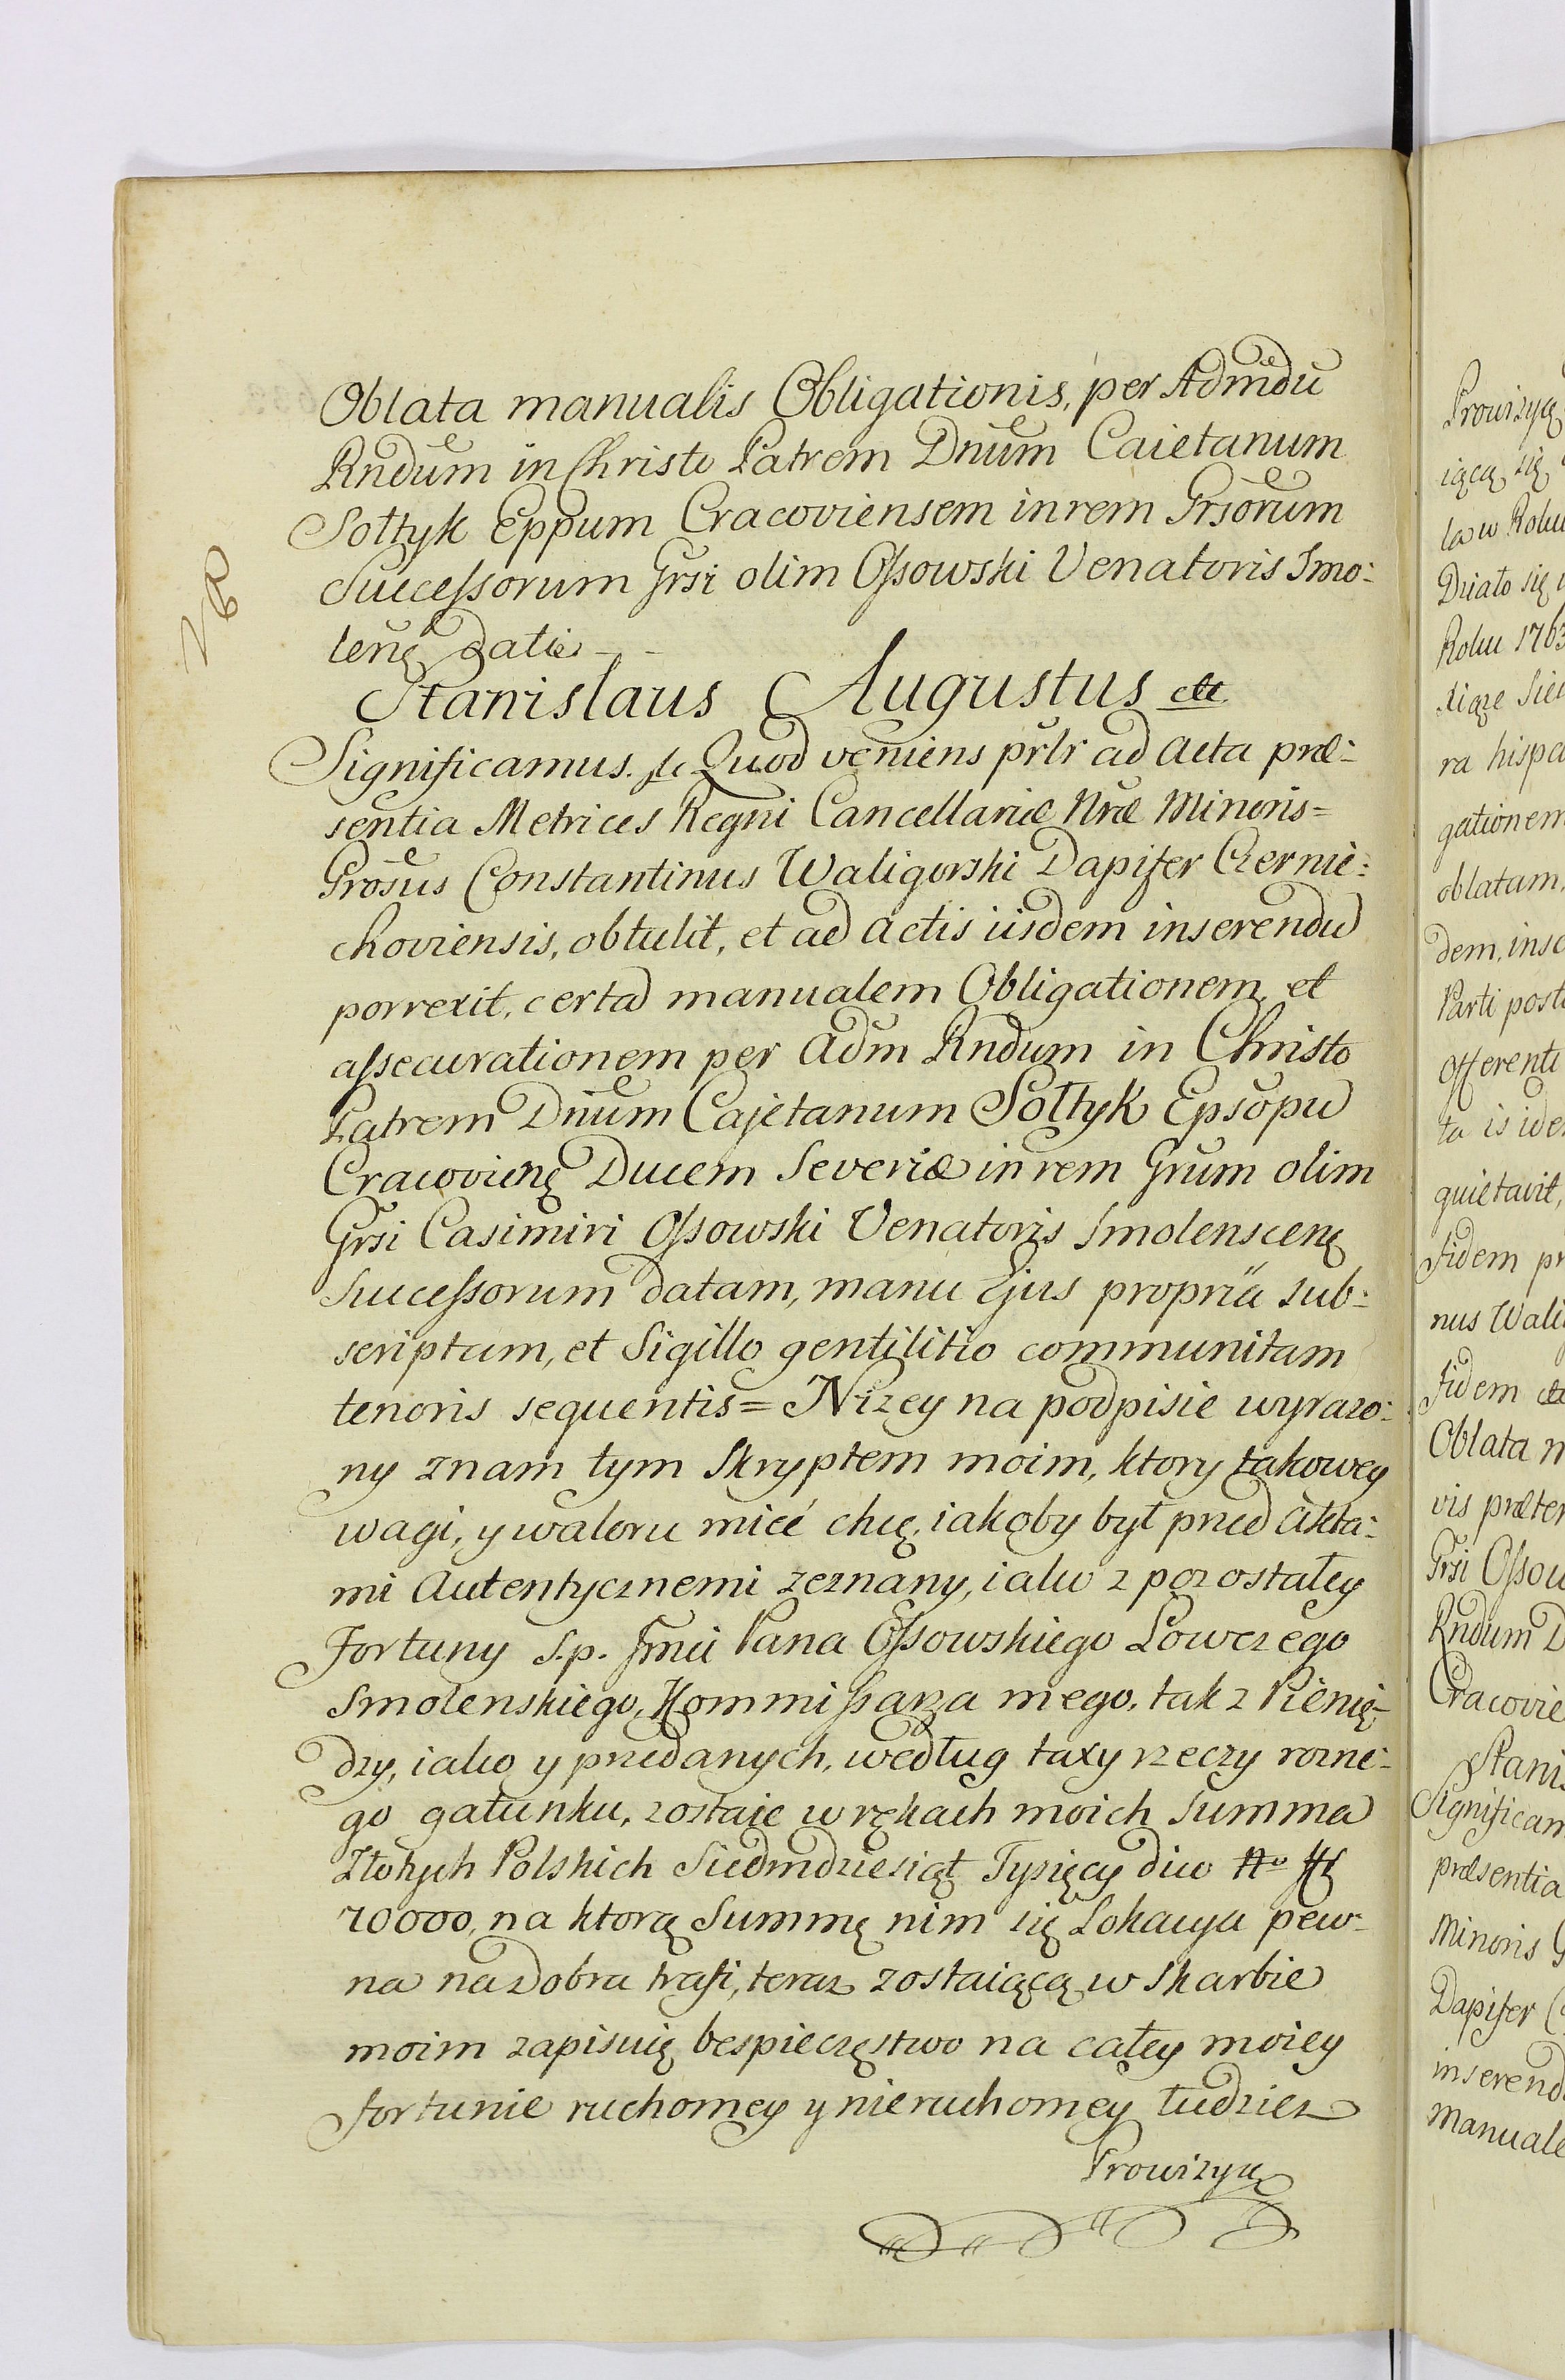 Oblata manualis Obligationis, per Admõdũ
Rndum in Christo Patrem Dnum Caietanum
Sołtyk Eppum Cracoviensem in rem Grsorum
Successorum Grsi olim Ossowski Venatoris Smo:
lenę datie
Stanislaus Augustus etc
Significamus. etc Quod veniens prlr ad acta præ:
sentia Metrices Regni Cancellariæ Nræ Minoris=
Grosus Constantinus Waligorski Dapifer Czernie:
choviensis, obtulit, et ad actis iisdem inserendũ
porrexit, certã manualem Obligationem, et
assecurationem per Adm Rndum in Christo
Patrem Dnum Cajetanum Sołtyk Epsopũ
Cracovienę Ducem Severiæ in rem Grum olim
Grsi Casimiri Ossowski Venatoris Smolenscenę
Successorum datam, manu Ejus propriâ sub:
scriptam, et Sigillo gentilitio communitam
tenoris sequentis= Nizey na podpisie wyrazo:
ny znam tym Skryptem moim, ktory takowey
wagi, y waloru mieć chcę, iakoby był przed Akta:
mi Autentycznemi zeznany, iako z pozostałey
Fortuny S.p. Jmci Pana Ossowskiego Łowczego
Smolenskiego, Kommissarza mego, tak z Pienię:
dzy, iako y przedanych, według taxy rzeczy rozne:
go gatunku, zostaie w rękach moich Summa
Złotych Polskich Siedmdziesiąt Tysięcy dico No
70000, na ktorą Summę nim się Lokacya pew:
na na Dobra trafi, teraz zostaiącą w Skarbie
moim zapisuię bespieczęstwo na całey moiey
fortunie ruchomey y nieruchomey tudziez
Prowizyą
Prowizyą
iącą się
la w Roku
Działo się
Roku 1763
xiąze
ra hispa
gationem
oblatam,
dem, inse
Parti post
offerenti
ta is ide
quietavit,
Fidem pr
nus Wali
Fidem etc
Oblata m
vis præter
Grsi Ossow
Rndum D
Cracovie
Stanis
Significam
præsentia
Minoris G
Dapifer C
inserend
Manuale